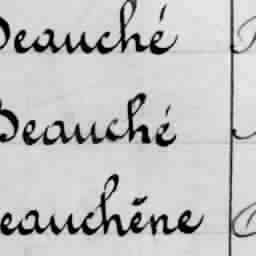 Beauché
Beauché
Beauchêne